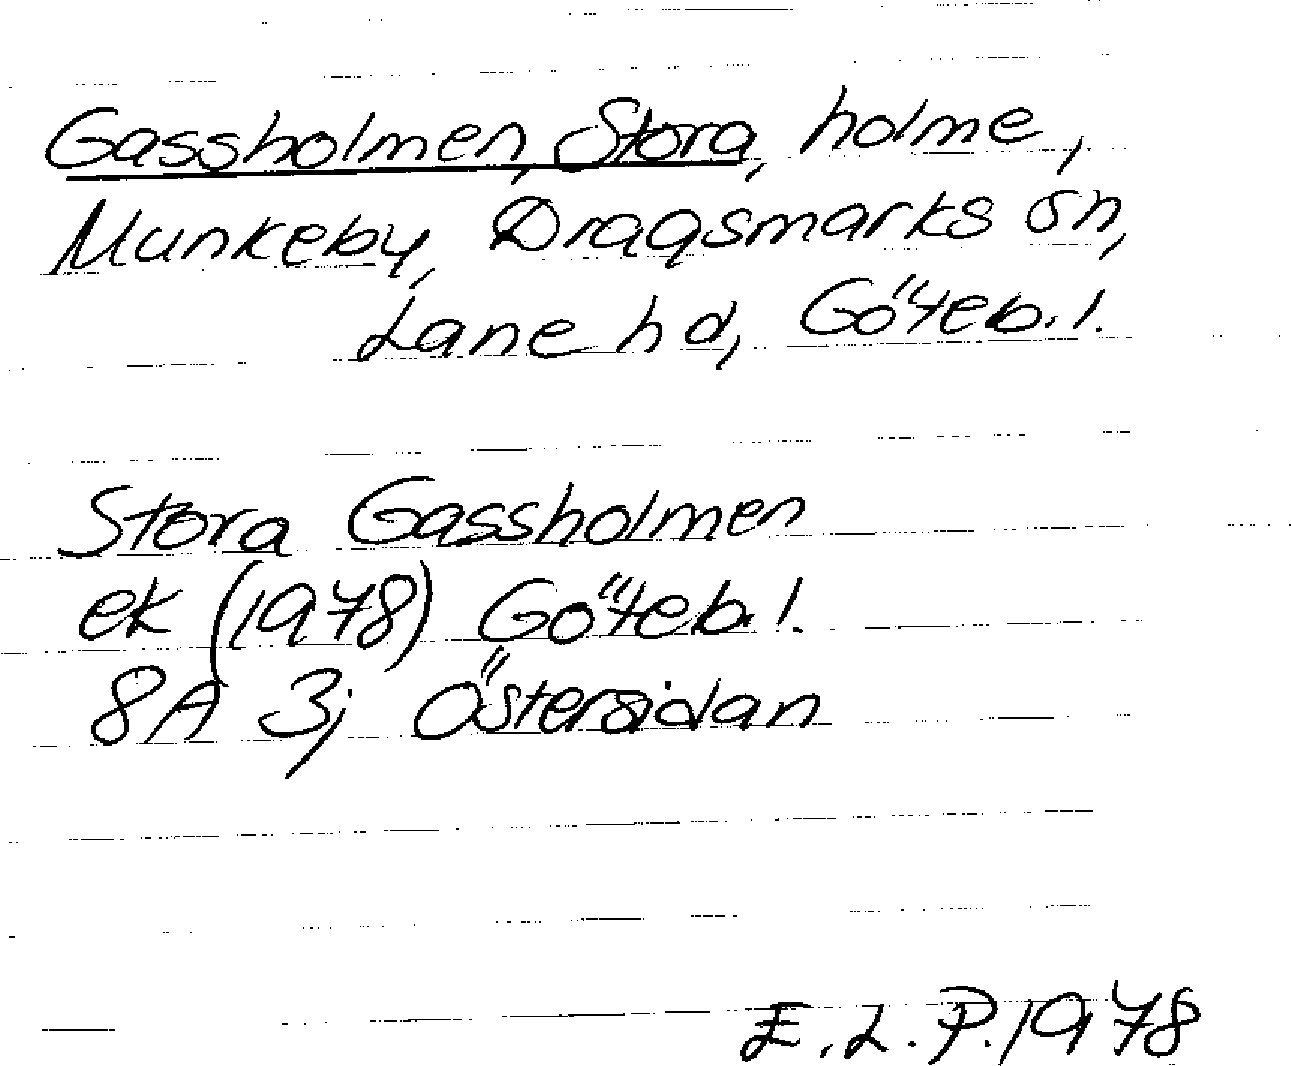 Gassholmen, Stora, holme,
Munkeby, Dragsmarks sn,
Lane hd, Göteb. l.
Stora Gassholmen
ek (1978) Göteb. l.
8A 3j Östersidan
E.L.P. 1978